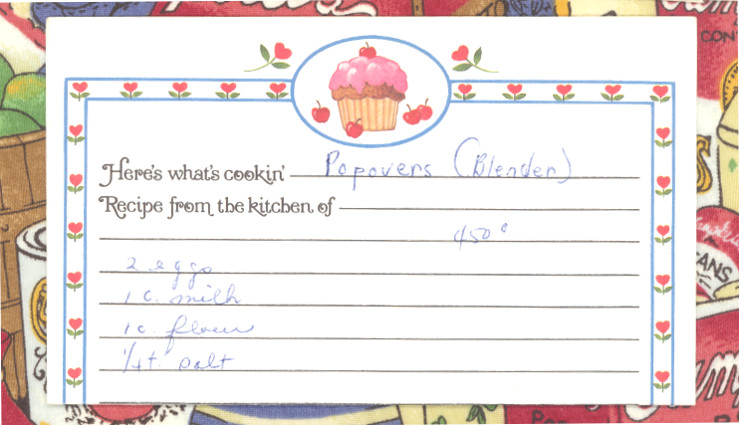 Here's what's cookin' Popovers (Blender)
Recipe from the kitchen of
450°
2 eggs
1 c. milk
1 c. flour
1/4 t. salt
CON
ANS